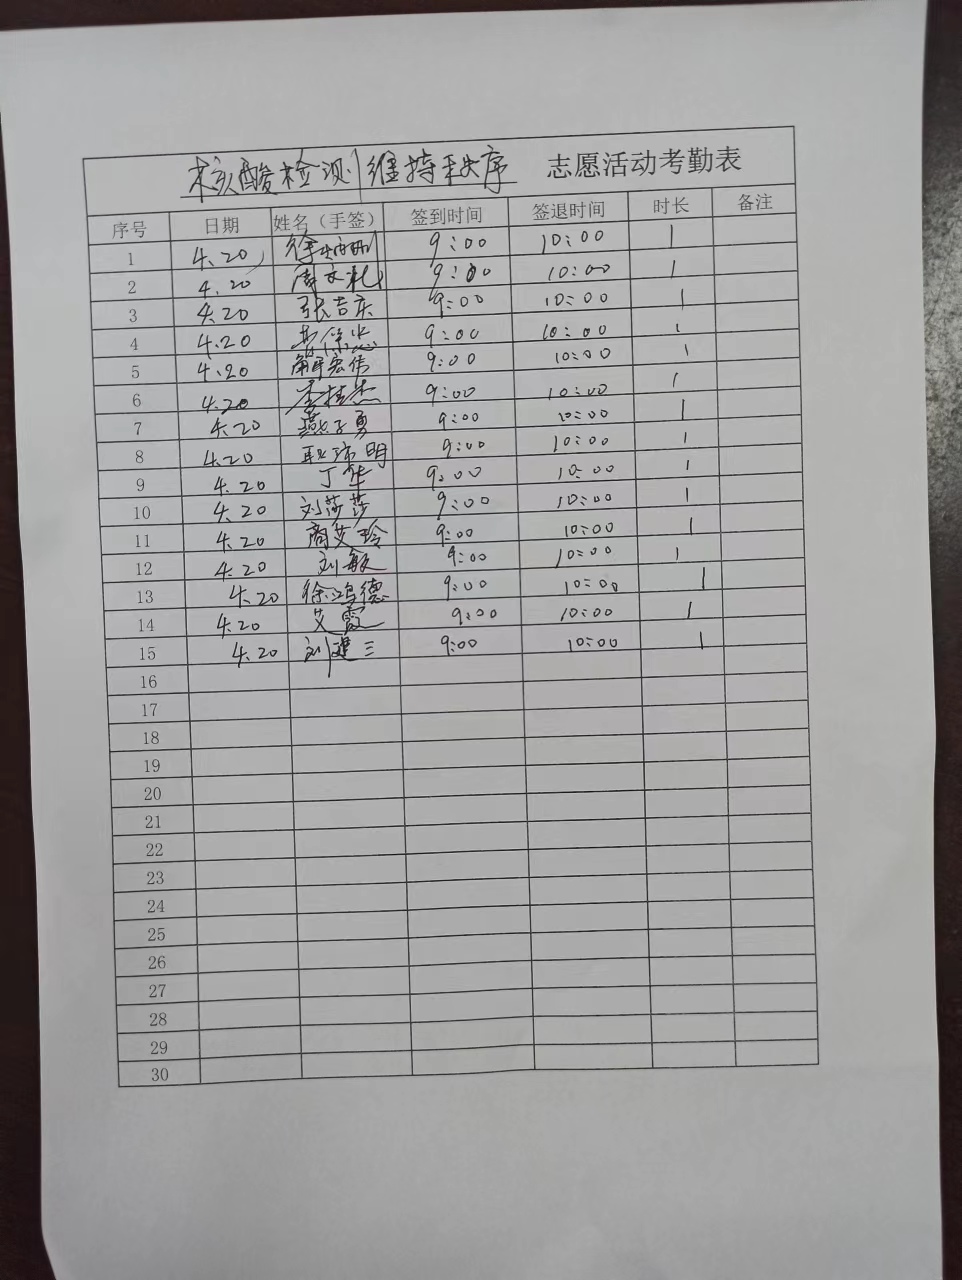 核酸检测维持秩序 志愿活动考勤表
序号 日期 姓名（手签） 签到时间 签退时间 时长 备注
1 4.20 9:00 10:00 1
2 4.20 9:00 10:00 1
3 4.20 张吉庆 9:00 10:00 1
4 4.20 9:00 10:00 1
5 4.20 解宏伟 9:00 10:00 1
6 4.20 李桂杰 9:00 10:00 1
7 4.20 燕子勇 9:00 10:00 1
8 4.20 9:00 10:00 1
9 4.20 丁华 9:00 10:00 1
10 4.20 刘莎莎 9:00 10:00 1
11 4.20 商艾玲 9:00 10:00 1
12 4.20 刘敏 9:00 10:00 1
13 4.20 徐鸿德 9:00 10:00 1
14 4.20 艾霞 9:00 10:00 1
15 4.20 刘建三 9:00 10:00 1
16
17
18
19
20
21
22
23
24
25
26
27
28
29
30